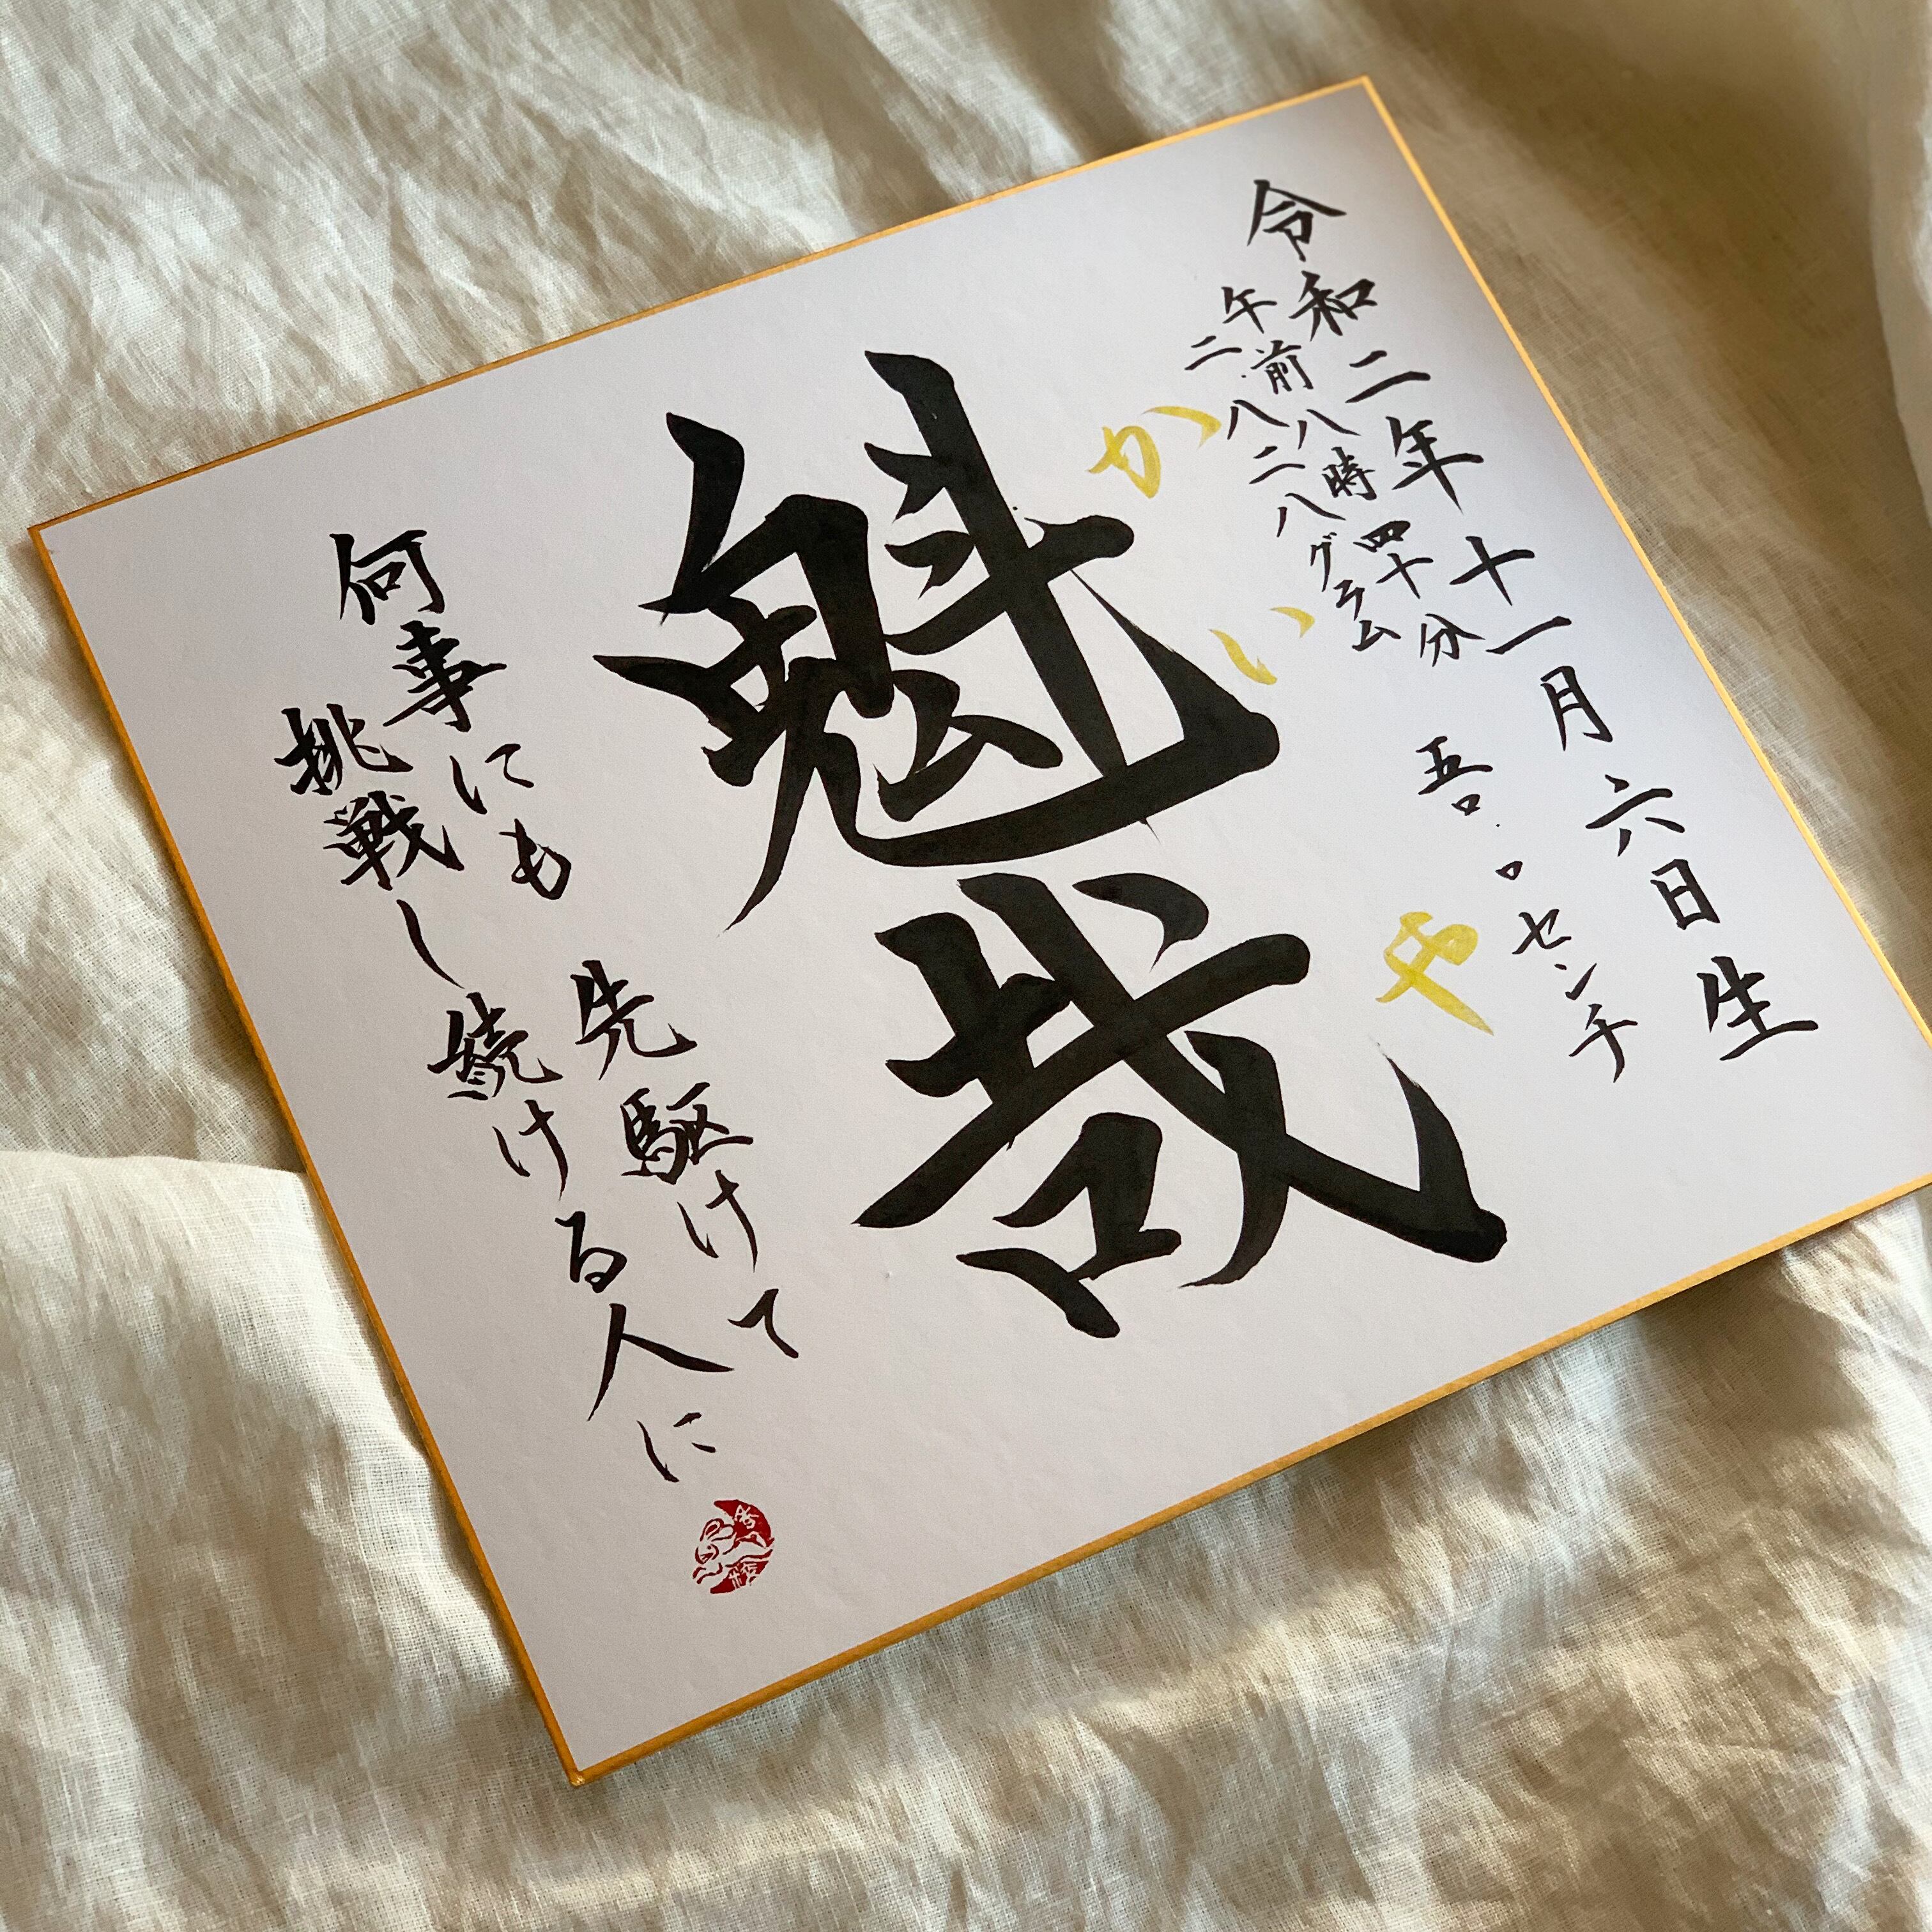 令和二年十一月六日生
午前八時四十分
二八二八グラム
五〇.〇センチ
かいや
魁哉
何事にも先駆けて
挑戦し続ける人に